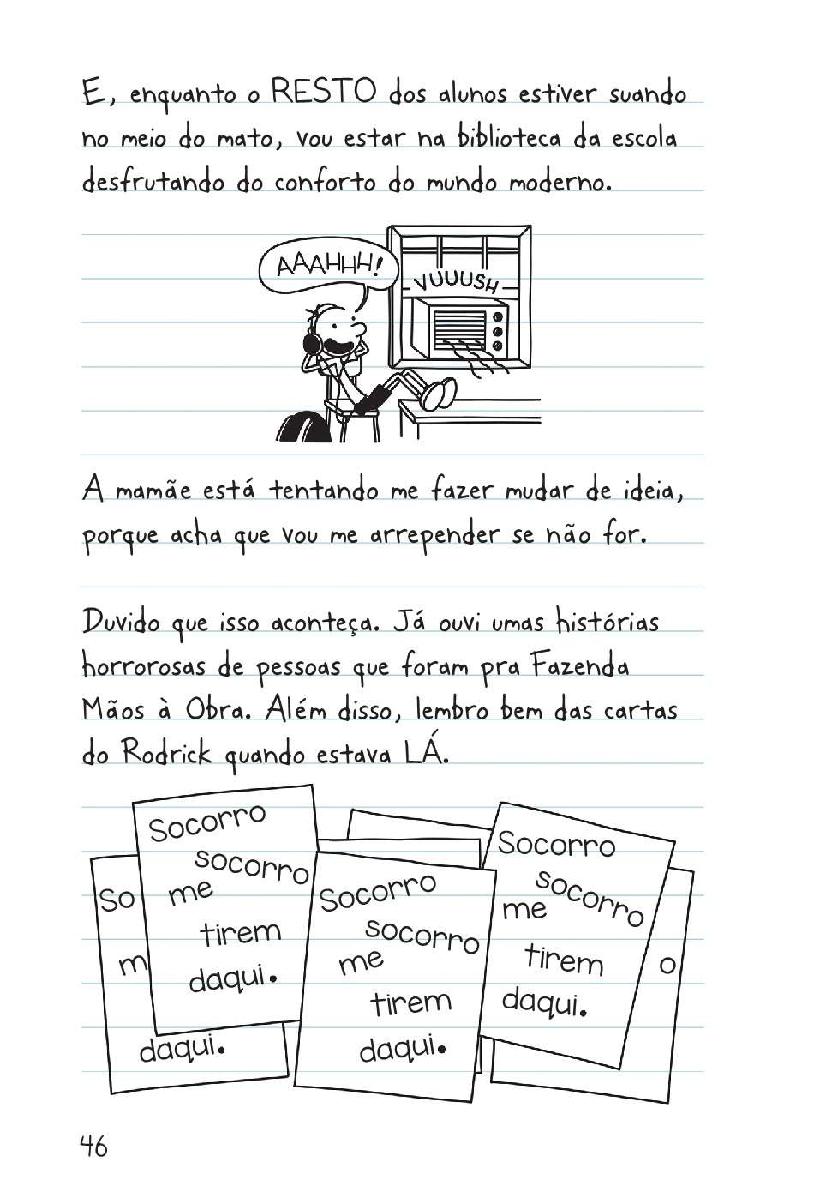 E, enquanto o RESTO dos alunos estiver suando
no meio do mato, vou estar na biblioteca da escola
desfrutando do conforto do mundo moderno.
AAAHHH!
VUUUSH
A mamãe está tentando me fazer mudar de ideia,
porque acha que vou me arrepender se não for.
Duvido que isso aconteça. Já ouvi umas histórias
horrorosas de pessoas que foram pra Fazenda
Mãos à Obra. Além disso, lembro bem das cartas
do Rodrick quando estava LÁ.
So
m
daqui.
Socorro
socorro
me
tirem
daqui.
Socorro
socorro
me
tirem
daqui.
Socorro
socorro
me
tirem
daqui.
o
46